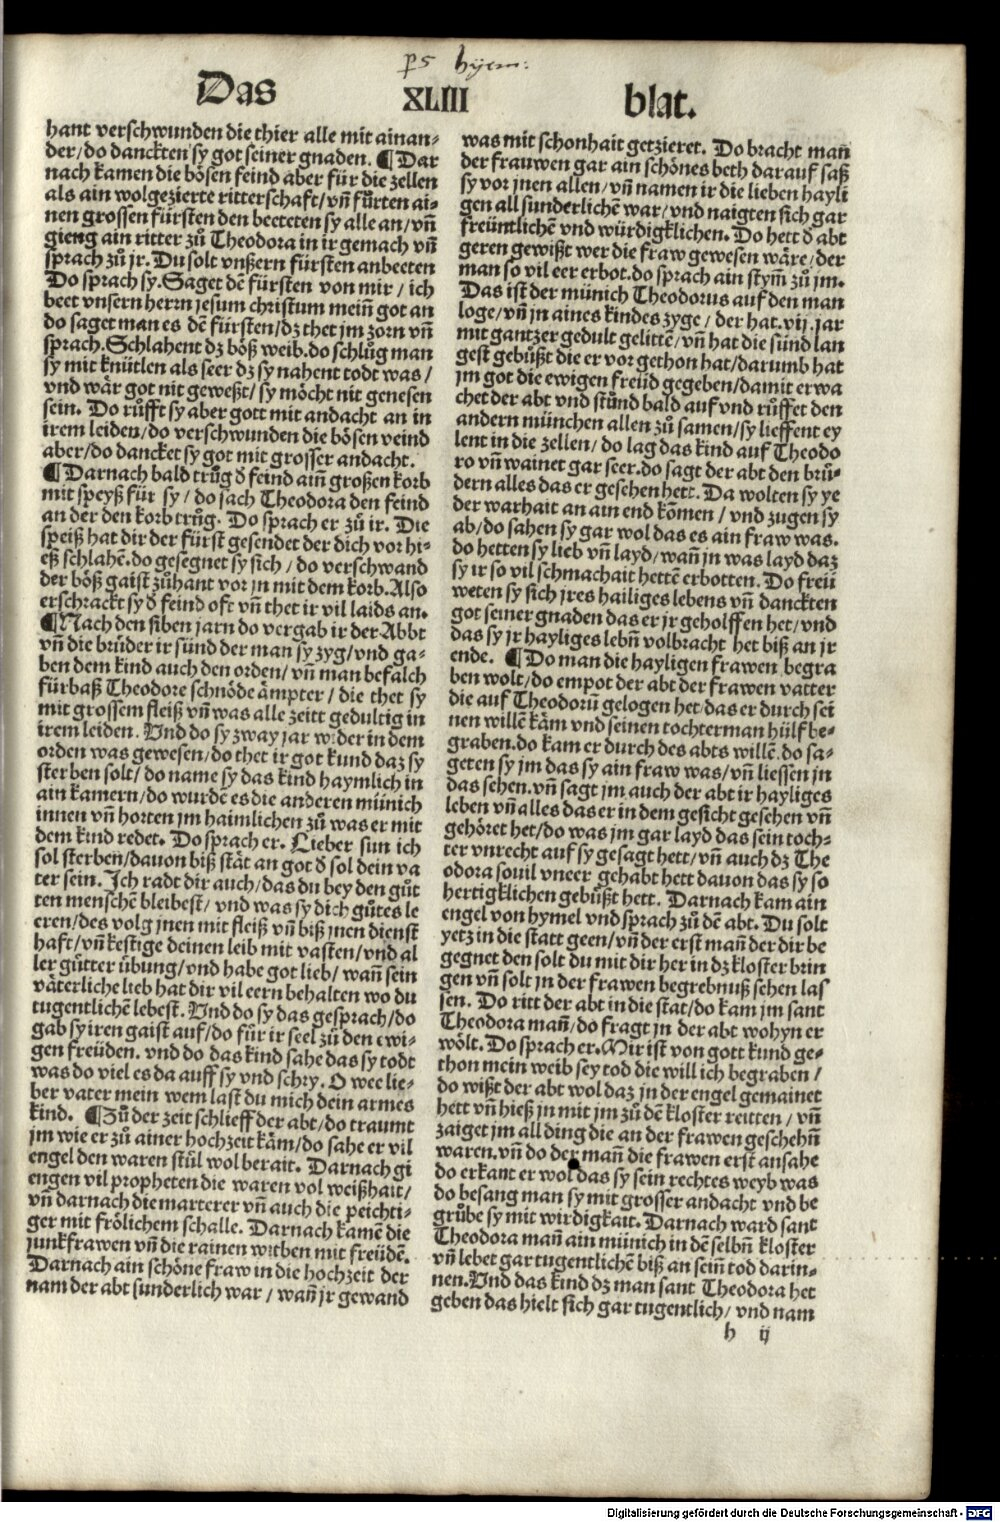 ps hyem:
Das XLIII blat.
hant verschwunden die thier alle mit ainan-
der/do danckten sy got seiner gnaden. ¶ Dar
nach kamen die bösen feind aber für die zellen
als ain wolgezierte ritterschaft/vñ fürten ai-
nen grossen fürsten den beeteten sy alle an/vñ
gieng ain ritter zů Theodora in ir gemach vñ
sprach zů jr. Du solt vnßern fürsten anbeeten
Do sprach sy. Saget dē fürsten von mir / ich
beet vnsern herrn jesum christum meiñ got an
do saget man es dē fürsten/dz thet jm zorn vñ
sprach. Schlahent dz böß weib. do schlůg man
sy mit knütlen als seer dz sy nahent todt was /
vnd wär got nit geweßt/ sy möcht nit genesen
sein. Do růfft sy aber gott mit andacht an in
irem leiden/do verschwunden die bösen veind
aber/do dancket sy got mit grosser andacht.
¶ Darnach bald trůg ð feind aiñ großen korb
mit speyß für sy / do sach Theodora den feind
an der den korb trůg. Do sprach er zů ir. Die
speiß hat dir der fürst gesendet der dich vor hi-
eß schlahē. do gesegnet sy sich / do verschwand
der böß gaist zůhant vor jn mit dem korb. Also
erschrackt sy ð feind oft vñ thet ir vil laids an.
¶ Nach den siben jarn do vergab ir der Abbt
vñ die brüder ir sünd der man sy zyg/vnd ga-
ben dem kind auch den orden/ vñ man befalch
fürbaß Theodore schnöde ämpter / die thet sy
mit grossem fleiß vñ was alle zeitt gedultig in
irem leiden. Vnd do sy zway jar wider in dem
orden was gewesen/do thet ir got kund daz sy
sterben solt/ do name sy das kind haymlich in
ain kamern/do wurdē es die anderen münich
innen vñ horten jm haimlichen zů was er mit
dem kind redet. Do sprach er. Lieber sun ich
sol sterben/dauon biß stät an got ð sol dein va
ter sein. Ich radt dir auch/das du bey den gůt
ten menschē bleibest/ vnd was sy dich gůtes le
eren/des volg jnen mit fleiß vñ biß jnen dienst
haft/vñ kestige deinen leib mit vasten/vnd al
ler gůtter übung/vnd habe got lieb/ wañ sein
väterliche lieb hat dir vil eern behalten wo du
tugentlichē lebest. Vnd do sy das gesprach/do
gab sy iren gaist auf/do für ir seel zů den ewi-
gen freüden. vnd do das kind sahe das sy todt
was do viel es da auff sy vnd schry. O wee lie-
ber vater mein wem last du mich dein armes
kind. ¶ Zů der zeit schlieff der abt/do traumt
jm wie er zů ainer hochzeit käm/do sahe er vil
engel den waren stůl wol berait. Darnach gi
engen vil propheten die waren vol weißhait/
vñ darnach die marterer vñ auch die peichti-
ger mit frölichem schalle. Darnach kamē die
junkfrawen vñ die rainen witben mit freüdē.
Darnach ain schöne fraw in die hochzeit der
nam der abt sunderlich war / wañ jr gewand
was mit schonhait getzieret. Do bracht mañ
der frauwen gar ain schönes beth darauf saß
sy vor jnen allen/ vñ namen ir die lieben hayli
gen all sunderlichē war/vnd naigten sich gar
freüntlichē vnd würdigklichen. Do hett ð abt
geren gewißt wer die fraw gewesen wäre/der
man so vil eer erbot. do sprach ain stym̃ zů jm.
Das ist der münich Theodorus auf den man
loge/vñ jn aines kindes zyge / der hat. vij. jar
mit gantzer gedult gelittē/vñ hat die sünd lan
gest gebůßt die er vor gethon hat/darumb hat
jm got die ewigen freüd gegeben/damit erwa
chet der abt vnd stůnd bald auf vnd růffet den
andern münchen allen zů samen/sy lieffent ey
lent in die zellen/ do lag das kind auf Theodo
ro vñ wainet gar seer. do sagt der abt den brü-
dern alles das er gesehen hett. Da wolten sy ye
der warhait an ain end kōmen / vnd zugen sy
ab/do sahen sy gar wol das es ain fraw was.
do hetten sy lieb vñ layd/wañ jn was layd daz
sy ir so vil schmachait hettē erbotten. Do freü
weten sy sich jres hailiges lebens vñ danckten
got seiner gnaden das er jr geholffen het/vnd
das sy jr hayliges lebñ volbracht het biß an jr
ende. ¶ Do man die hayligen frawen begra
ben wolt/do empot der abt der frawen vatter
die auf Theodorū gelogen het/das er durch sei
nen willē käm vnd seinen tochterman hülf be-
graben. do kam er durch des abts willē. do sa-
geten sy jm das sy ain fraw was/vñ liessen jn
das sehen. vñ sagt jm auch der abt ir hayliges
leben vñ alles das er in dem gesicht gesehen vñ
gehöret het/do was jm gar layd das sein toch-
ter vnrecht auf sy gesagt hett/vñ auch dz The
odora souil vneer gehabt hett dauon das sy so
hertigklichen gebůßt hett. Darnach kam ain
engel von hymel vnd sprach zů dē abt. Du solt
yetz in die statt geen/vñ der erst mañ der dir be
gegnet den solt du mit dir her in dz kloster brin
gen vñ solt jn der frawen begrebnuß sehen las
sen. Do ritt der abt in die stat/do kam jm sant
Theodora mañ/do fragt jn der abt wohyn er
wölt. Do sprach er. Mir ist von gott kund ge-
thon mein weib sey tod die will ich begraben /
do wißt der abt wol daz jn der engel gemainet
hett vñ hieß jn mit jm zů dē kloster reitten / vñ
zaiget jm all ding die an der frawen geschehñ
waren. vñ do der mañ die frawen erst ansahe
do erkant er wol das sy sein rechtes weyb was
do besang man sy mit grosser andacht vnd be
grůbe sy mit wirdigkait. Darnach ward sant
Theodora mañ ain münich in dē selbñ kloster
vñ lebet gar tugentlichē biß an seiñ tod darin-
nen. Vnd das kind dz man sant Theodora het
geben das hielt sich gar tugentlich/ vnd nam
h ij
Digitalisierung gefördert durch die Deutsche Forschungsgemeinschaft - DFG